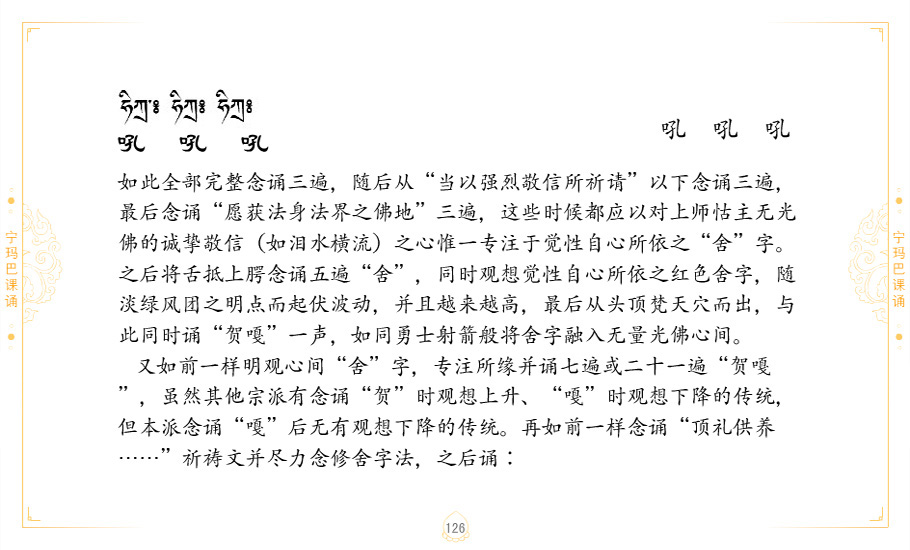 ཧིཀ༔ ཧིཀ༔ ཧིཀ༔
吼 吼 吼
吼 吼 吼
如此全部完整念诵三遍，随后从“当以强烈敬信所祈请”以下念诵三遍，
最后念诵“愿获法身法界之佛地”三遍，这些时候都应以对上师怙主无光
佛的诚挚敬信（如泪水横流）之心惟一专注于觉性自心所依之“舍”字。
之后将舌抵上腭念诵五遍“舍”，同时观想觉性自心所依之红色舍字，随
淡绿风团之明点而起伏波动，并且越来越高，最后从头顶梵天穴而出，与
此同时诵“贺嘎”一声，如同勇士射箭般将舍字融入无量光佛心间。
又如前一样明观心间“舍”字，专注所缘并诵七遍或二十一遍“贺嘎
”，虽然其他宗派有念诵“贺”时观想上升、“嘎”时观想下降的传统，
但本派念诵“嘎”后无有观想下降的传统。再如前一样念诵“顶礼供养
……”祈祷文并尽力念修舍字法，之后诵：
宁玛巴课诵
宁玛巴课诵
126